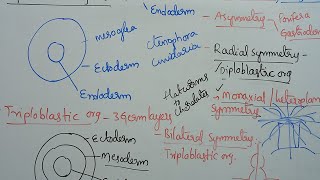 Endoderm
Asymmetry -
Porifera
Gastropoda
mesoglea
Ctenophora
Cnidaria
Ectoderm
Endoderm
Radial Symmetry -
Diploblastic org
Flatworms
to
Chordates
Monaxial/heteropolar
symmetry
Triploblastic org - 3 Germ layers
Bilateral Symmetry
Triploblastic org.
Ectoderm
Mesoderm